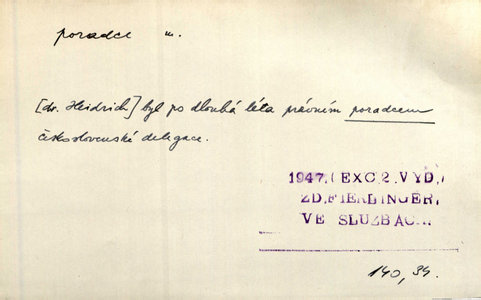 poradce m.
[dr. Heidrich] byl po dlouhá léta právním poradcem
československé delegace.
1947.(EXC.2.VYD.)
ZD.FIERLINGER,
VE SLUŽBÁCH...
140, 34.